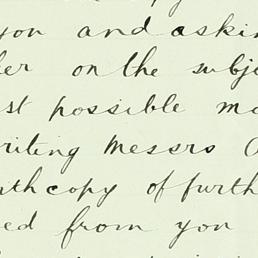 you and askin
er on the subje
st possible ma
riting Messrs
thcopy of furth
ed from you